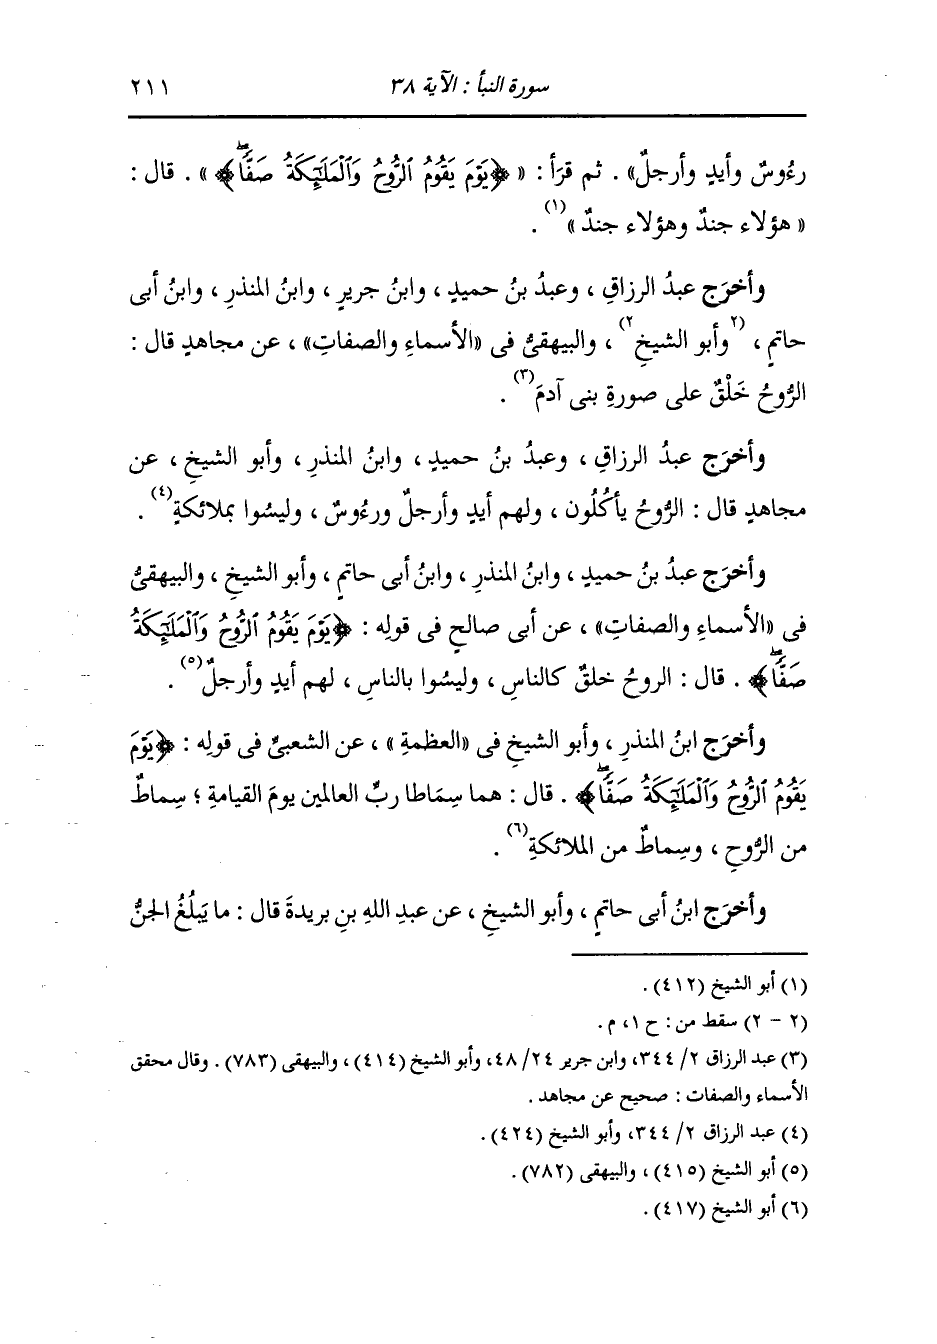 سورة النبأ : الآية ٣٨ ٢١١
رءُوسٌ وأيدٍ وأرجلٌ» . ثم قرَأ : « ﴿يَوْمَ يَقُومُ ٱلرُّوحُ وَٱلْمَلَٰٓئِكَةُ صَفًّاۖ﴾ » . قال :
« هؤلاء جندٌ وهؤلاء جندٌ »(١) .
وأخرَج عبدُ الرزاقِ ، وعبدُ بنُ حميدٍ ، وابنُ جريرٍ ، وابنُ المنذرِ ، وابنُ أبى
حاتمٍ ، (٢وأبو الشيخِ٢) ، والبيهقىُّ فى «الأسماءِ والصفاتِ» ، عن مجاهدٍ قال :
الرُّوحُ خَلْقٌ على صورةِ بنى آدمَ(٣) .
وأخرَج عبدُ الرزاقِ ، وعبدُ بنُ حميدٍ ، وابنُ المنذرِ ، وأبو الشيخِ ، عن
مجاهدٍ قال : الرُّوحُ يأكُلُون ، ولهم أيدٍ وأرجلٌ ورءُوسٌ ، وليسُوا بملائكةٍ(٤) .
وأخرَج عبدُ بنُ حميدٍ ، وابنُ المنذرِ ، وابنُ أبى حاتمٍ ، وأبو الشيخِ ، والبيهقىُّ
فى «الأسماءِ والصفاتِ» ، عن أبى صالحٍ فى قولِه : ﴿يَوْمَ يَقُومُ ٱلرُّوحُ وَٱلْمَلَٰٓئِكَةُ
صَفًّاۖ﴾ . قال : الروحُ خلقٌ كالناسِ ، وليسُوا بالناسِ ، لهم أيدٍ وأرجلٌ(٥) .
وأخرَج ابنُ المنذرِ ، وأبو الشيخِ فى «العظمةِ » ، عن الشعبىِّ فى قولِه : ﴿يَوْمَ
يَقُومُ ٱلرُّوحُ وَٱلْمَلَٰٓئِكَةُ صَفًّاۖ﴾ . قال : هما سِمَاطا ربِّ العالمين يومَ القيامةِ ؛ سِماطٌ
من الرُّوحِ ، وسِماطٌ من الملائكةِ(٦) .
وأخرَج ابنُ أبى حاتمٍ ، وأبو الشيخِ ، عن عبدِ اللهِ بنِ بريدةَ قال : ما يَبلُغُ الجنُّ
(١) أبو الشيخ (٤١٢) .
(٢ - ٢) سقط من : ح ١، م .
(٣) عبد الرزاق ٢/ ٣٤٤، وابن جرير ٢٤/ ٤٨، وأبو الشيخ (٤١٤) ، والبيهقى (٧٨٣) . وقال محقق
الأسماء والصفات : صحيح عن مجاهد .
(٤) عبد الرزاق ٢/ ٣٤٤، وأبو الشيخ (٤٢٤) .
(٥) أبو الشيخ (٤١٥) ، والبيهقى (٧٨٢) .
(٦) أبو الشيخ (٤١٧) .